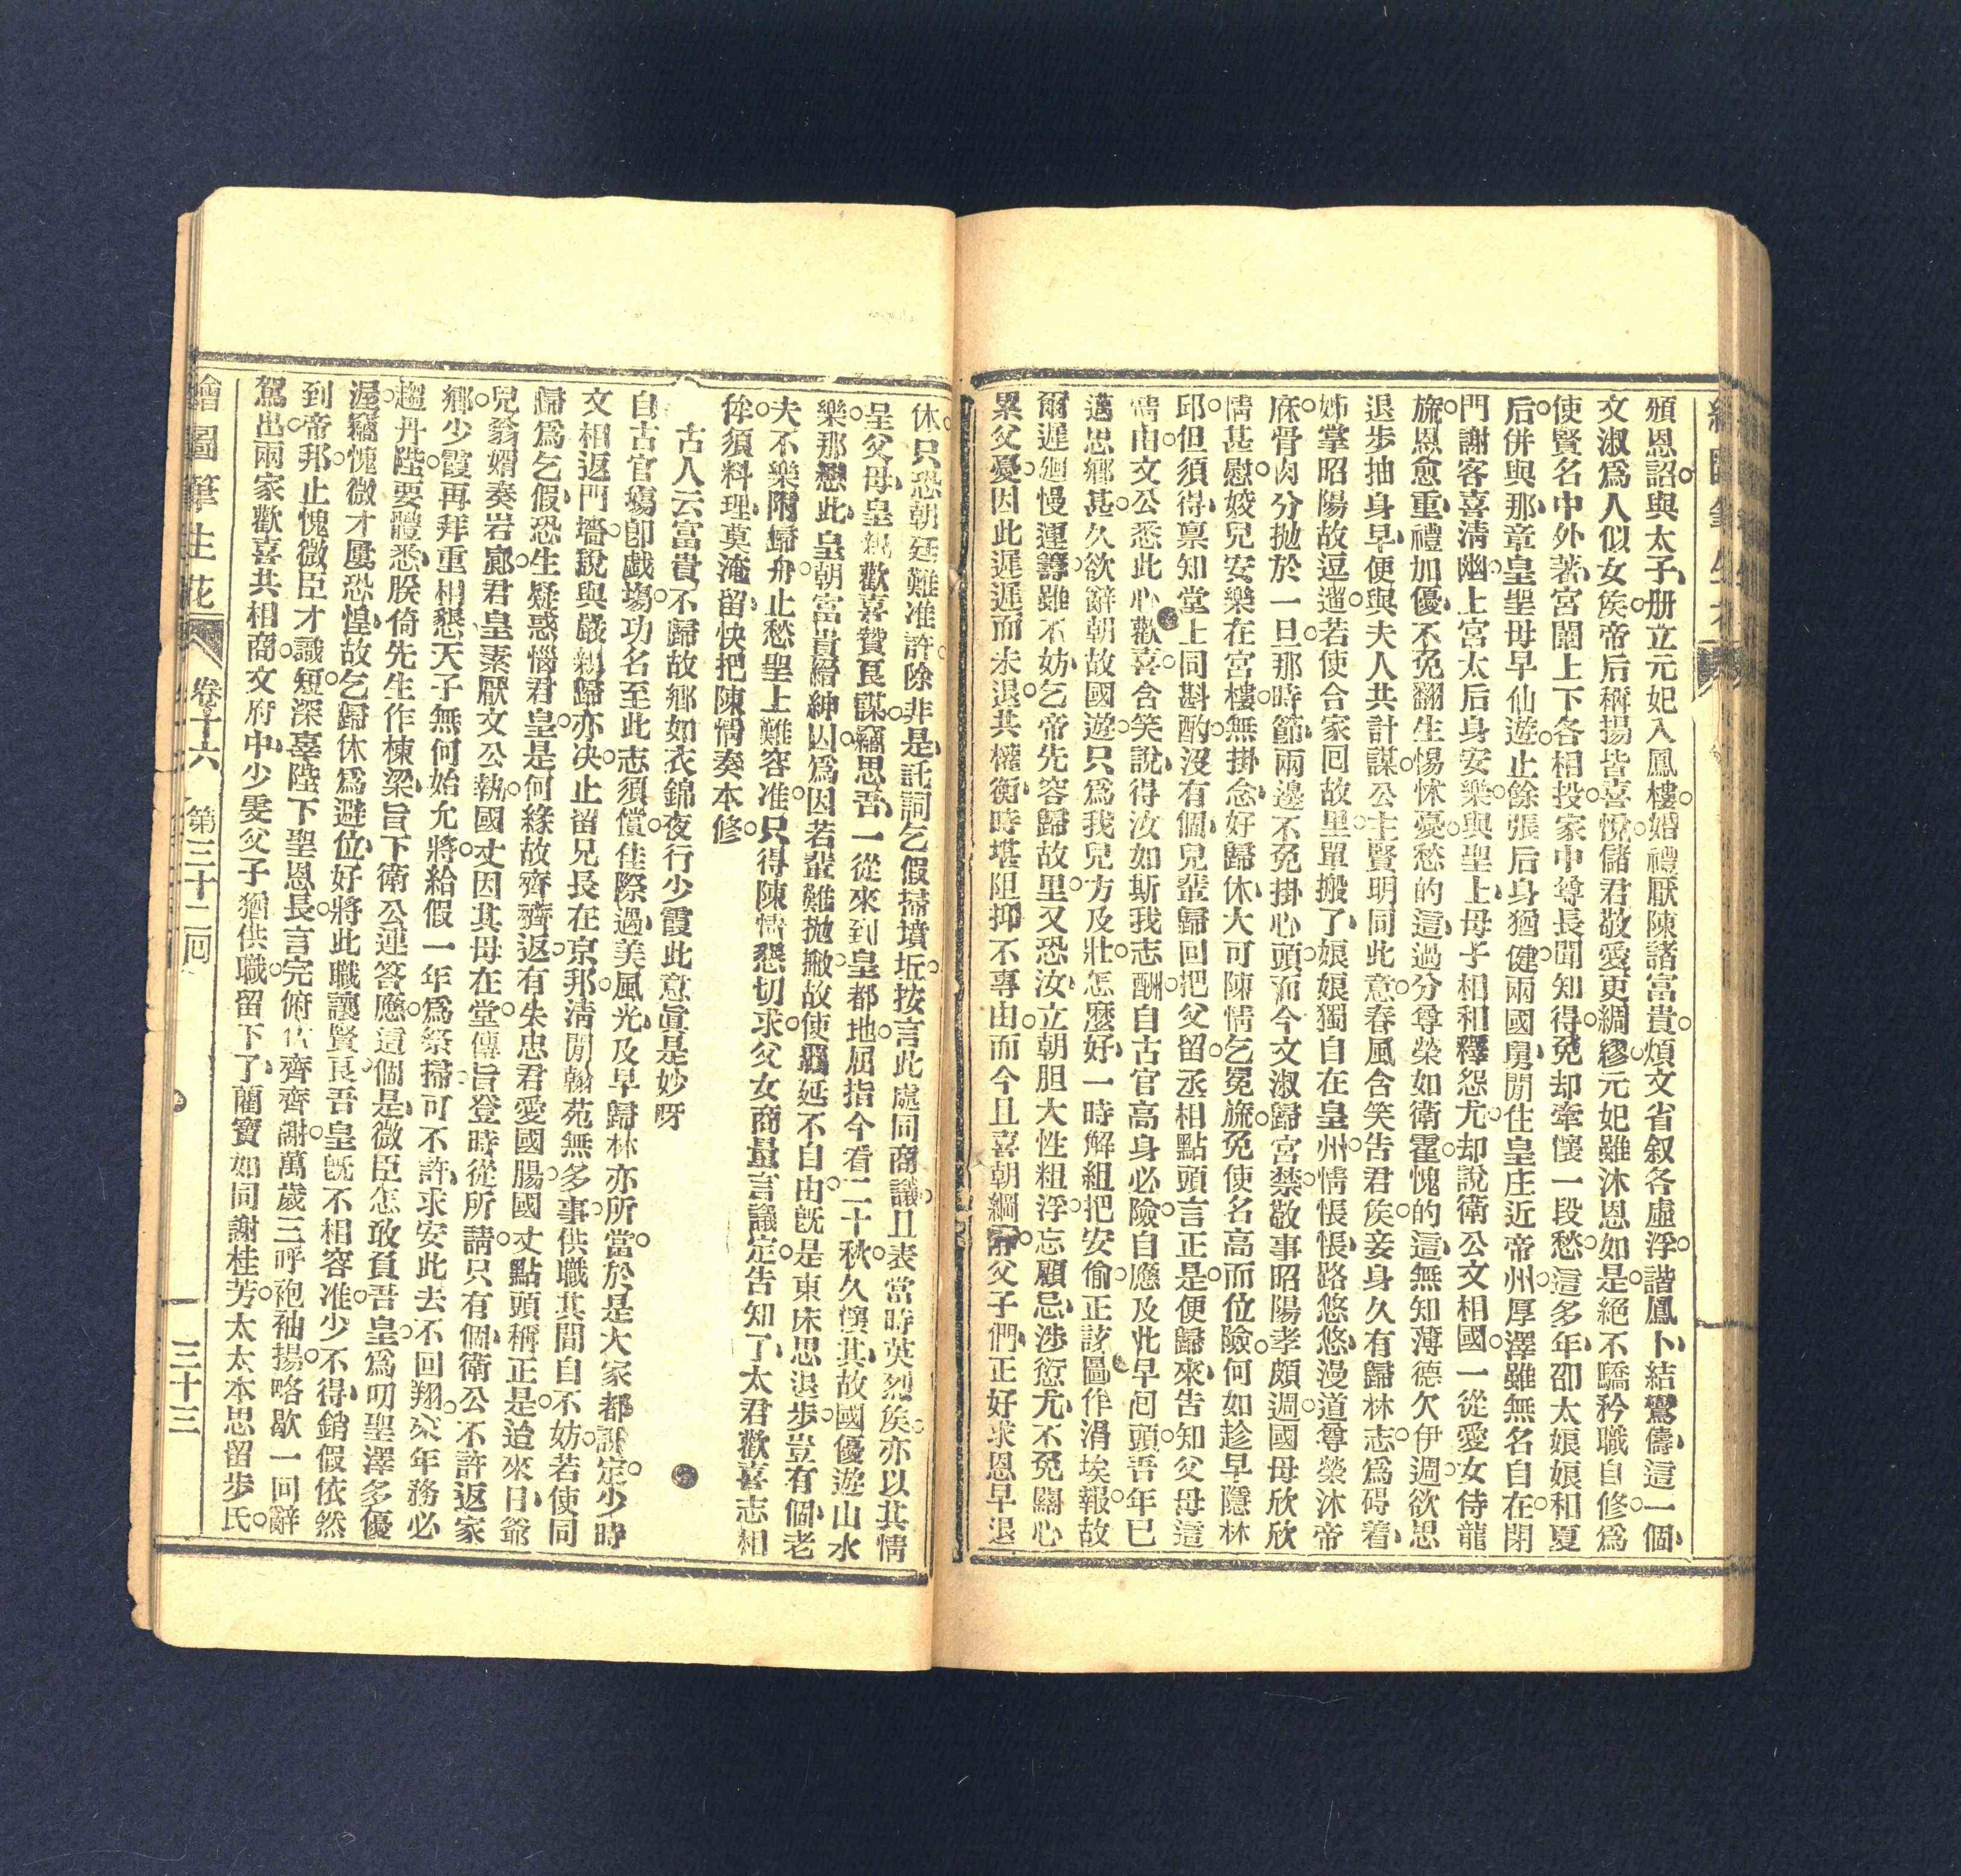 頒恩詔與太子册立元妃入鳳樓婚禮厭陳諸富貴煩文省叙各虛浮諧鳳卜結鸞儔這一個
文淑爲人似女矦帝后稱揚皆喜悅儲君敬愛更綢繆元妃雖沐恩如是絕不驕矜職自修爲
使賢名中外著宮闈上下各相投家中尊長聞知得免却牽懷一段愁這多年邵太娘娘和夏
后併與那章皇聖母早仙遊止餘張后身猶健兩國舅閒住皇庄近帝州厚澤雖無名自在閉
門謝客喜清幽上宮太后身安樂與聖上母子相和釋怨尤却說衛公文相國一從愛女待龍
旒恩愈重禮加優不免翻生惕怵憂愁的這過分尊榮如衛霍愧的這無知薄德欠伊週欲思
退步抽身早便與夫人共計謀公主賢明同此意春風含笑告君矦妾身久有歸林志爲碍着
姊掌昭陽故逗遛若使合家回故里單搬了娘娘獨自在皇州情悵悵路悠悠漫道尊榮沐帝
庥骨肉分拋於一旦那時節兩邊不免掛心頭而今文淑歸宮禁敬事昭陽孝頗週國母欣欣
情甚慰姣兒安樂在宮樓無掛念好歸休大可陳情乞冕旒免使名高而位險何如趁早隱林
邱但須得禀知堂上同斟酌沒有個兒輩歸回把父留丞相點頭言正是便歸來告知父母這
情由文公悉此心歡喜含笑說得汝如斯我志酬自古官高身必險自應及此早囘頭吾年已
邁思鄉甚久欲辭朝故國遊只爲我兒方及壯怎麼好一時解組把安偷正該圖作涓埃報故
爾遲廻慢運籌雖不妨乞帝先容歸故里又恐汝立朝胆大性粗浮忘顧忌涉愆尤不免關心
累父憂因此遲遲而未退共權衡時堪阻抑不專由而今且喜朝綱靜父子們正好求恩早退
休只恐朝廷難准許除非是託詞乞假掃墳坵按言此處同商議且表當時英烈矦亦以其情
呈父母皇親歡喜贊良謀竊思吾一從來到皇都地屈指今看二十秋久慔其故國優遊山水
樂那戀此皇朝富貴縉紳囚爲因若輩難拋撇故使躭延不自由旣是東床思退步豈有個老
夫不樂附歸舟止愁聖上難容准只得陳情懇切求父女商量言議定告知了太君歡喜志相
侔須料理莫淹留快把陳情奏本修
古人云富貴不歸故鄉如衣錦夜行少霞此意眞是妙呀
自古官塲卽戲塲功名至此志須償佳際過美風光及早歸林亦所當於是大家都說定少時
文相返門墻說與嚴親歸亦决止留兄長在京邦清閒翰苑無多事供職其間自不妨若使同
歸爲乞假恐生疑惑惱君皇是何緣故齊齊返有失忠君愛國腸國丈點頭稱正是迨來日爺
兒翁婿奏岩廊君皇素厭文公執國丈因其母在堂傳旨登時從所請只有個衛公不許返家
鄉少霞再拜重相懇天子無何始允將給假一年爲祭掃可不許求安此去不回翔來年務必
趨丹陛要體悉朕倚先生作棟梁旨下衛公連答應這個是微臣怎敢負吾皇爲叨聖澤多優
渥竊愧微才屢恐惶故乞歸休爲避位好將此職讓賢良吾皇旣不相容准少不得銷假依然
到帝邦止愧微臣才識短深辜陛下聖恩長言完俯伏齊齊謝萬歲三呼袍袖揚略歇一回辭
駕出兩家歡喜共相商文府中少雯父子猶供職留下了蘭寶如同謝桂芳太太本思留步氏
繪圖筆生花 卷十六 第三十二回 三十三